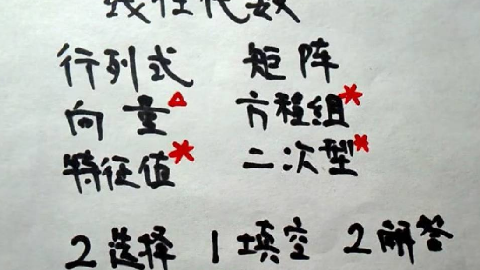 线性代数
行列式 矩阵
向量△ 方程组*
特征值* 二次型*
2选择 1填空 2解答